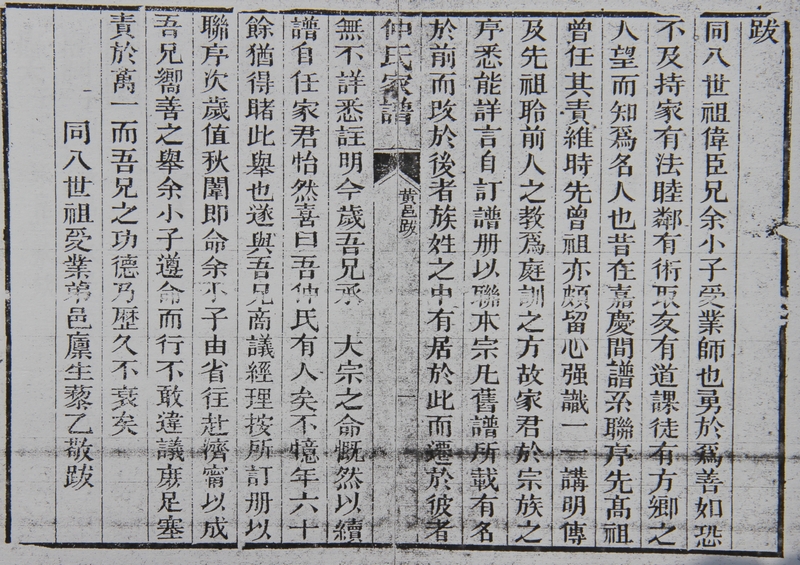 跋
同八世祖偉臣兄余小子受業師也勇於爲善如恐
不及持家有法睦鄰有術取友有道課徒有方鄉之
人望而知爲名人也昔在嘉慶間譜系聯序先高祖
曾任其責維時先曾祖亦頗留心强識一一講明傳
及先祖聆前人之教爲庭訓之方故家君於宗族之
序悉能詳言自訂譜册以聯本宗凡舊譜所載有名
於前而改於後者族姓之中有居於此而遷於彼者
仲氏家譜
黄邑跋
一
無不詳悉註明今歲吾兄承 大宗之命慨然以續
譜自任家君怡然喜曰吾仲氏有人矣不憶年六十
餘猶得睹此舉也遂與吾兄商議經理按所訂册以
聯序次歲值秋闈即命余小子由省往赴濟甯以成
吾兄嚮善之舉余小子遵命而行不敢違議廣足塞
責於萬一而吾兄之功德乃歷久不衰矣
同八世祖受業弟邑廩生藜乙敬跋